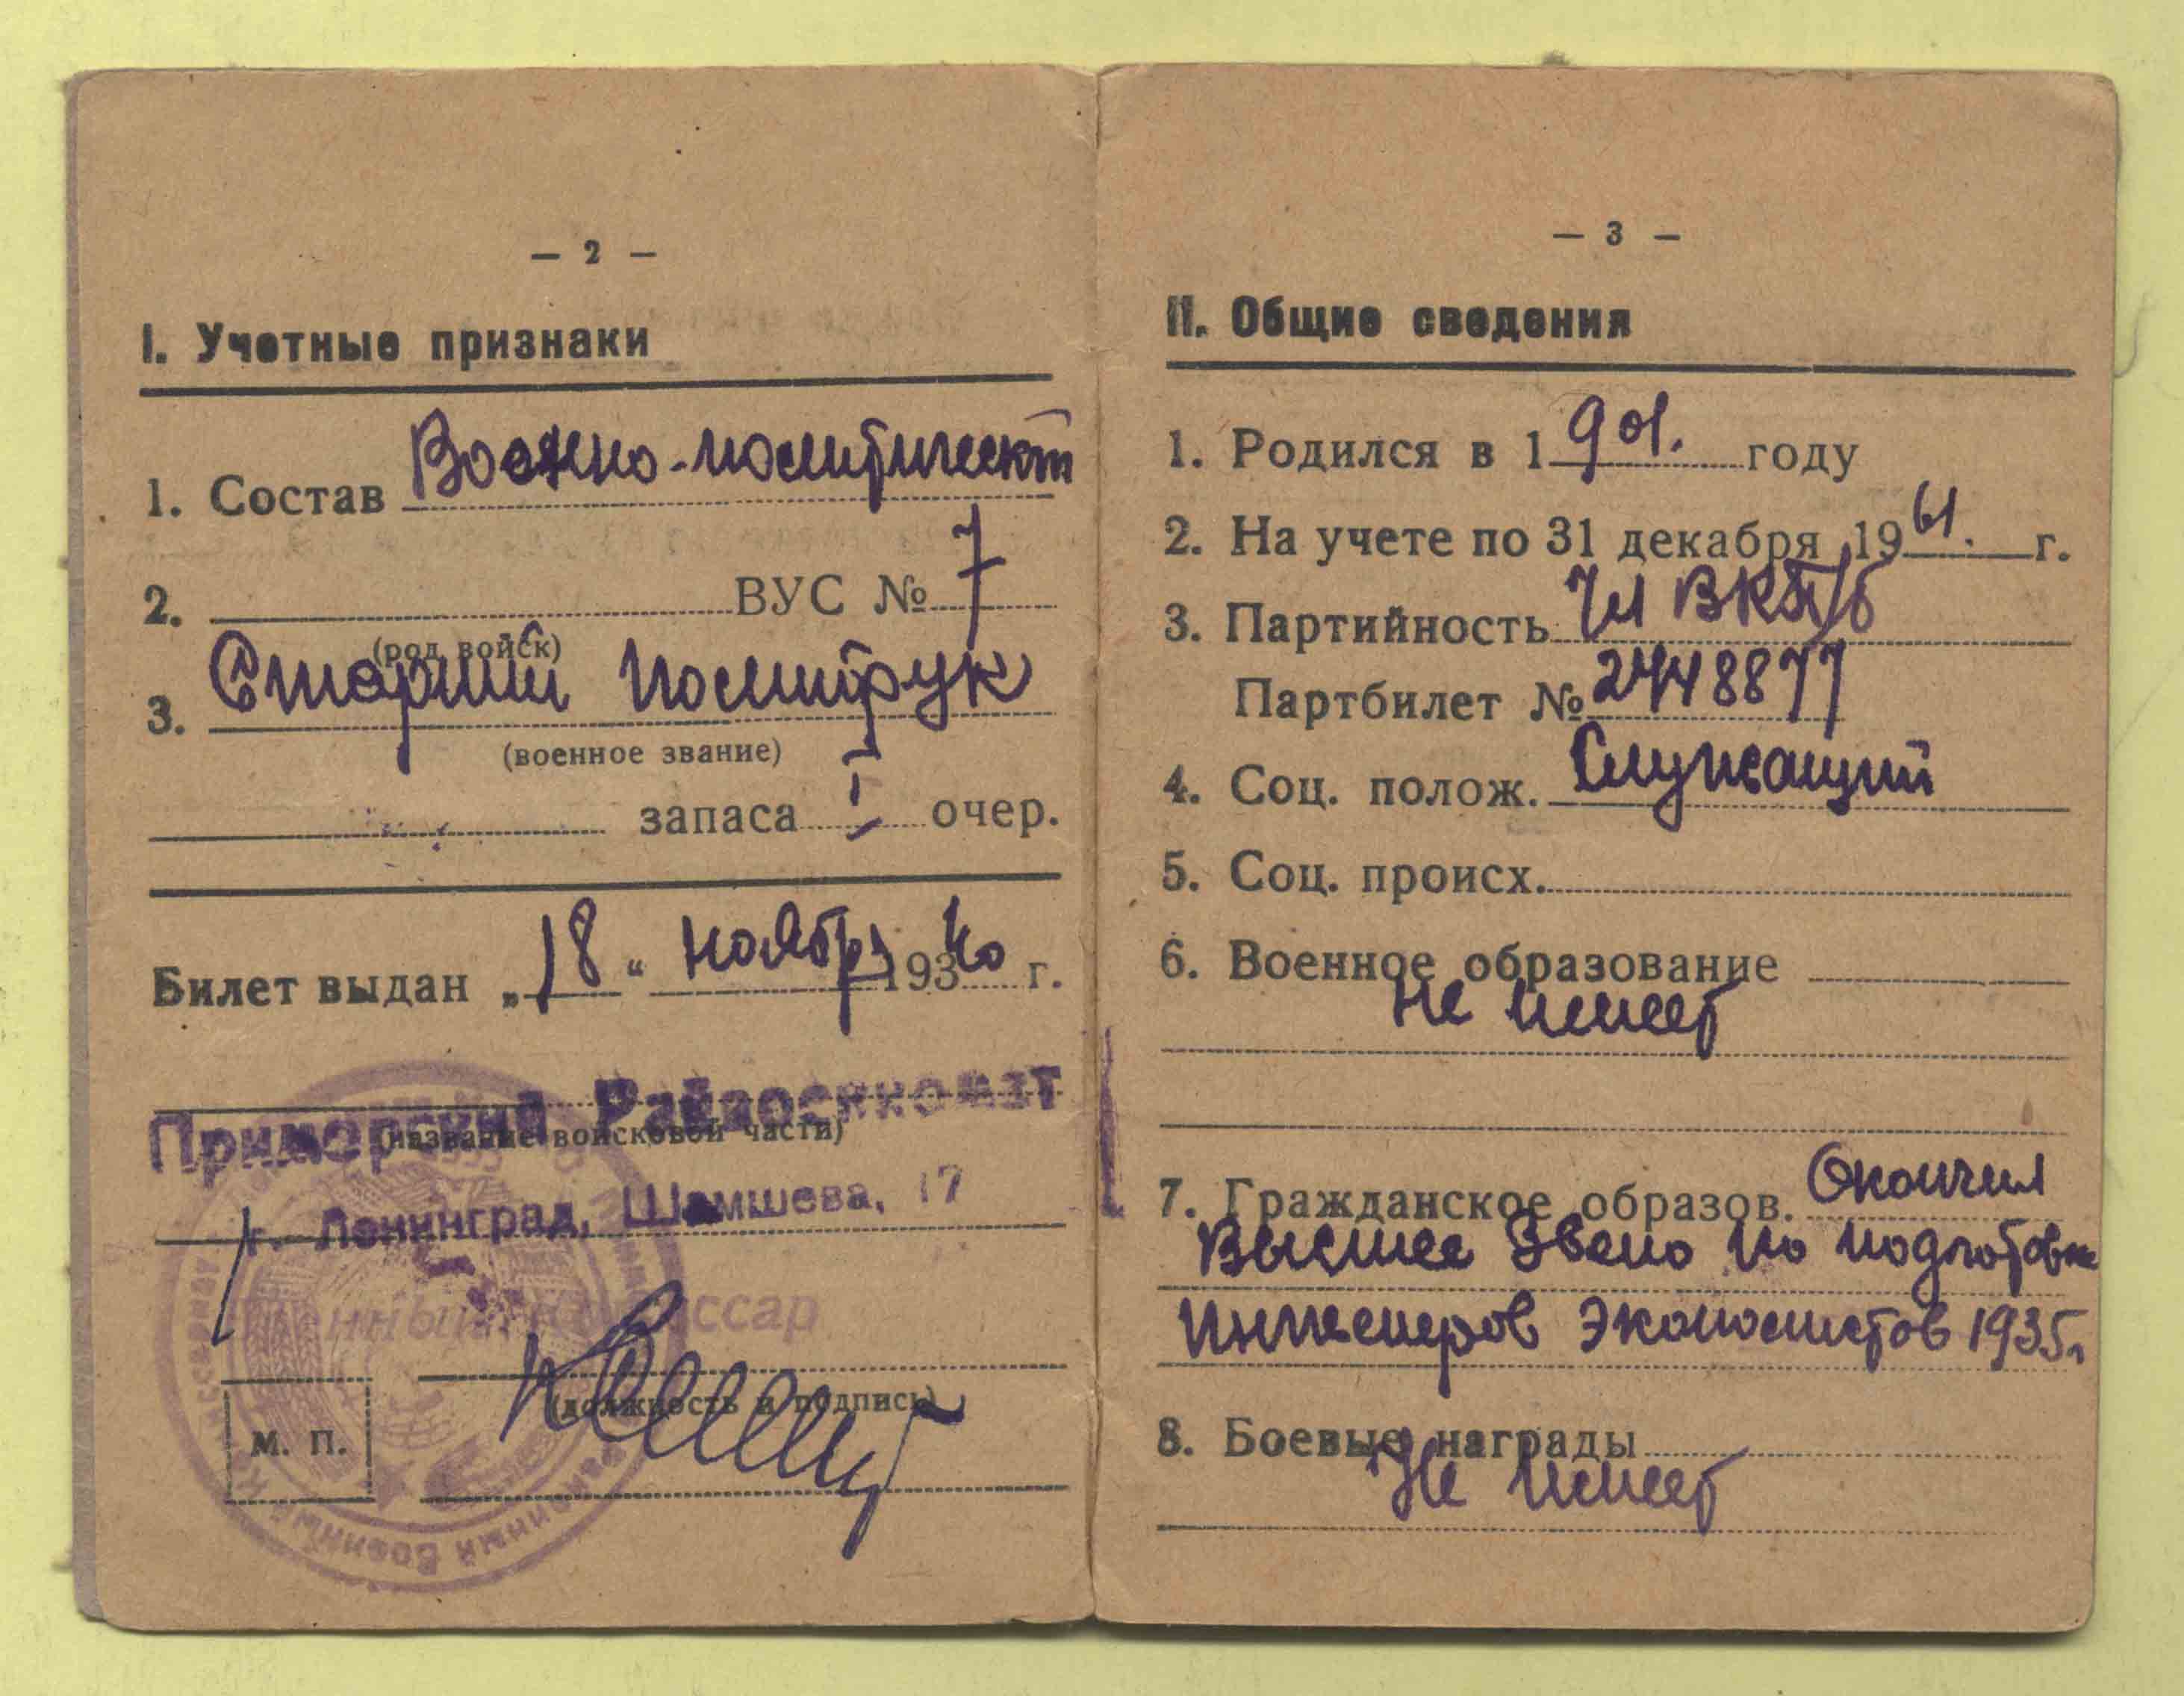 — 2 —
I. Учетные признаки
1. Состав Военно-политическ
2. ВУС № 7
(род войск)
3. Старший Политрук
(военное звание)
запаса I очер.
Билет выдан „18“ ноября 193 40 г.
Приморский Райвоенкомат
(название войсковой части)
г. Ленинград, Шамшева, 17
(должность и подпись)
М. П.
— 3 —
II. Общие сведения
1. Родился в 1901. году
2. На учете по 31 декабря 1961. г.
3. Партийность Чл ВКП/б
Партбилет № 2448877
4. Соц. полож. Служащий
5. Соц. происх.
6. Военное образование
Не имеет
7. Гражданское образов. Окончил
Высшее Звено по подготовке
Инженеров Экономистов 1935г
8. Боевые награды
Не имеет